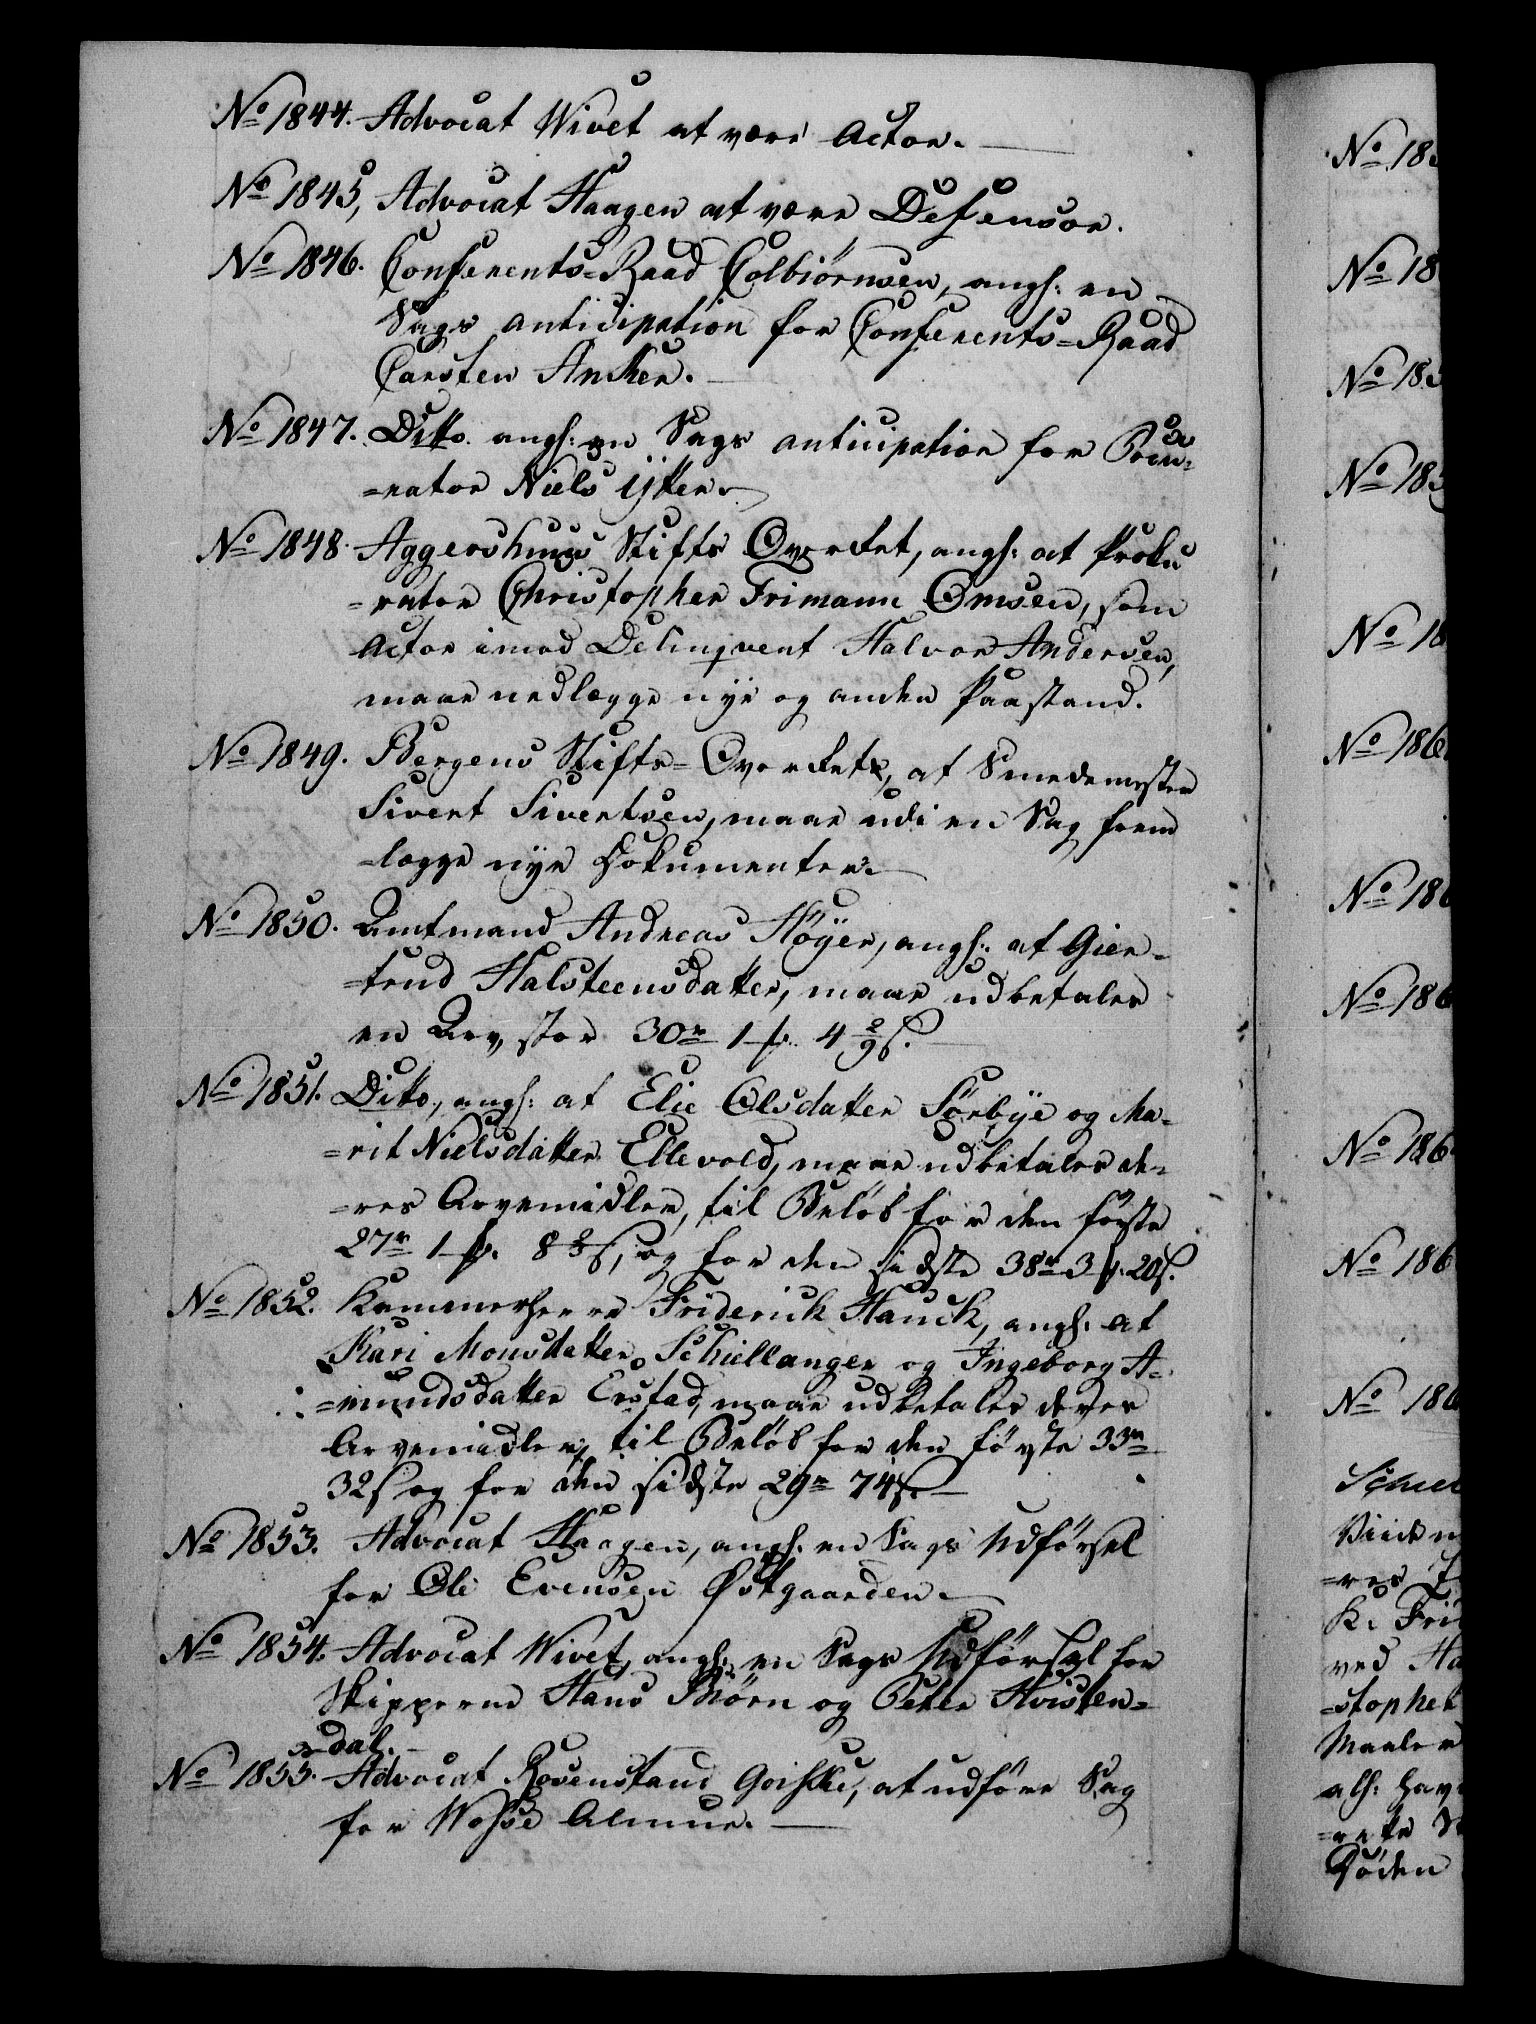 No 1844. Advocat Wivet at være Actor.
No 1845, Advocat Haagen at være Defensor.
No 1846. Conferents-Raad Colbiørnsen, angh: en
Sags anticipation for Conferents-Raad
Carsten Anker.
No 1847. Ditto angh: en Sags anticipation for Procu-
=rator Niels Ytter.
No 1848. Aggershuus Stifts Overret, angh: at Proku
=rator Christopher Frimann Omsen, som
Actor imod Delinqvent Halvor Andersen,
maae nedlægge nye og anden Paastand.
No 1849. Bergens Stifts-Overret, at Smedemester
Sivert Sivertsen, maae udi en Sag frem
=lægge nye Dokumenter.
No 1850. Amtmand Andreas Höyer, angh: at Gier-
=trud Halsteensdatter, maae udbetales
en Arv, stor 30r 1 4 2/9 s.
No 1851. Ditto, angh: at Elie Olsdatter Sörbye og Ma-
=rit Nielsdatter Ellevold, maae udbetales de-
=res Arvemidler, til Beløb for den förste
27r 1 8 s, og for den sidste 38r 3 20s.
No 1852. Kammerherre Friderich Hauch, angh: at
Kari Monsdatter Schiellanger og Ingeborg A-
=mundsdatter Erstad, maae udbetales deres
Arvemidler, til Beløb for den förste 33r
32s og for den sidste 29r 74s.
No 1853. Advocat Haagen, angh: en Sags Udförsel
for Ole Evensen Østgaarden.
No 1854. Advocat Wivet, angh: en Sags Udförsel for
Skipperne Hans Biörn og Peter Hvisten-
=dal.
No 1855. Advocat Rosenstand Goiske, at udföre Sag
for Wosse Almue.
No 185
No 18
No 185
No 185
No 18
No 186
No 186
No 186
No 186
No 186
No 186
K. Fri
ved Ha
=stophe